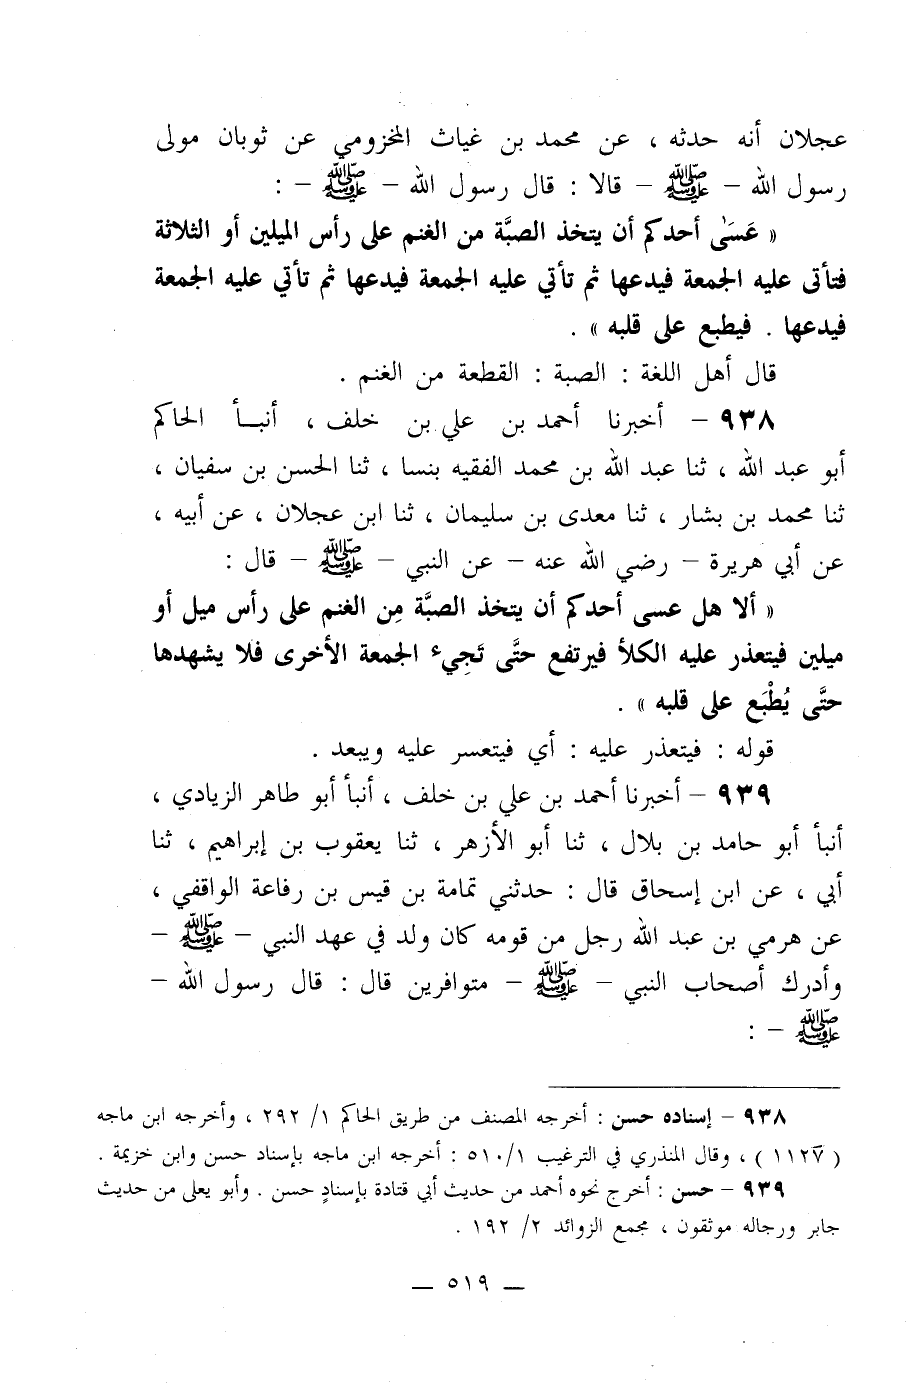 عجلان أنه حدثه ، عن محمد بن غياث المخزومي عن ثوبان مولى
رسول الله – ﷺ – قالا : قال رسول الله – ﷺ – :
« عَسَىٰ أحدكم أن يتخذ الصبَّة من الغنم على رأس الميلين أو الثلاثة
فتأتى عليه الجمعة فيدعها ثم تأتي عليه الجمعة فيدعها ثم تأتي عليه الجمعة
فيدعها . فيطبع على قلبه » .
قال أهل اللغة : الصبة : القطعة من الغنم .
٩٣٨ – أخبرنا أحمد بن علي بن خلف ، أنبأ الحاكم
أبو عبد الله ، ثنا عبد الله بن محمد الفقيه بنسا ، ثنا الحسن بن سفيان ،
ثنا محمد بن بشار ، ثنا معدى بن سليمان ، ثنا ابن عجلان ، عن أبيه ،
عن أبي هريرة – رضي الله عنه – عن النبي – ﷺ – قال :
« ألا هل عسى أحدكم أن يتخذ الصبَّة مِن الغنم على رأس ميل أو
ميلين فيتعذر عليه الكلأ فيرتفع حتَّى تَجِيء الجمعة الأخرى فلا يشهدها
حتَّى يُطْبَع على قلبه » .
قوله : فيتعذر عليه : أي فيتعسر عليه ويبعد .
٩٣٩ – أخبرنا أحمد بن علي بن خلف ، أنبأ أبو طاهر الزيادي ،
أنبأ أبو حامد بن بلال ، ثنا أبو الأزهر ، ثنا يعقوب بن إبراهيم ، ثنا
أبي ، عن ابن إسحاق قال : حدثني ثمامة بن قيس بن رفاعة الواقفي ،
عن هرمي بن عبد الله رجل من قومه كان ولد في عهد النبي – ﷺ –
وأدرك أصحاب النبي – ﷺ – متوافرين قال : قال رسول الله –
ﷺ – :
٩٣٨ – إسناده حسن : أخرجه المصنف من طريق الحاكم ١/ ٢٩٢ ، وأخرجه ابن ماجه
( ١١٢٧ ) ، وقال المنذري في الترغيب ٥١٠/١ : أخرجه ابن ماجه بإسناد حسن وابن خزيمة .
٩٣٩ – حسن : أخرج نحوه أحمد من حديث أبي قتادة بإسنادٍ حسن . وأبو يعلى من حديث
جابر ورجاله موثقون ، مجمع الزوائد ٢/ ١٩٢ .
— ٥١٩ —